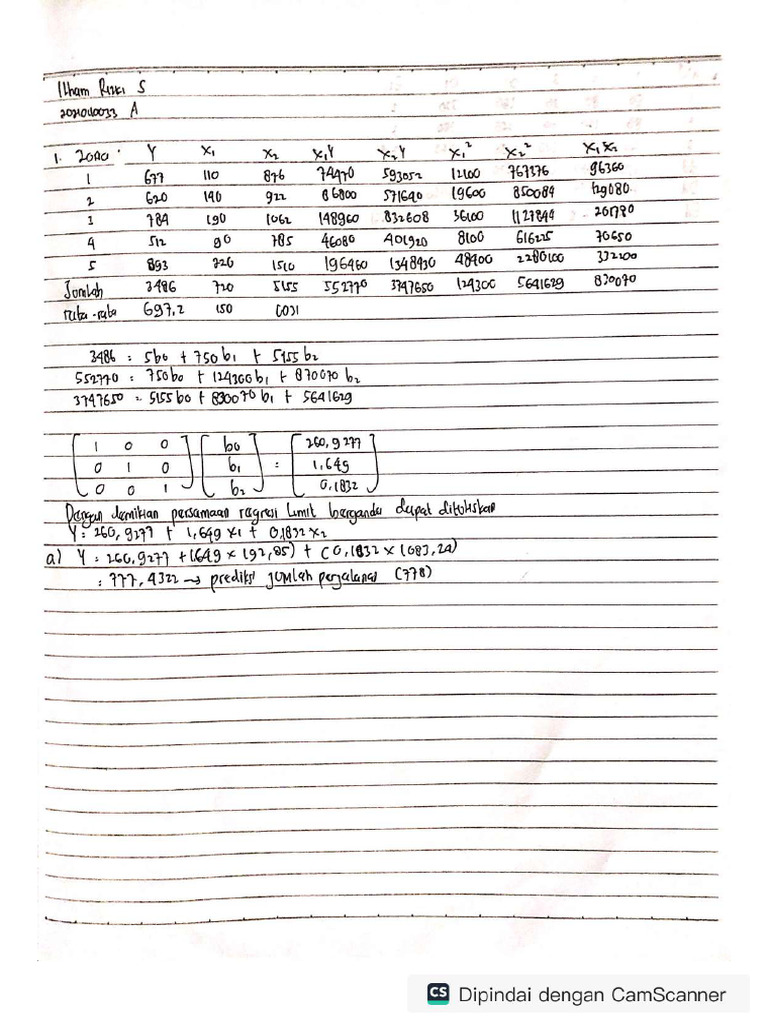 Ilham Rizki S
2021010033 A
1. Zona Y X₁ X₂ X₁Y X₂Y X₁² X₂² X₁X₂
1 677 110 876 74470 593052 12100 767376 96360
2 620 140 922 86800 571640 19600 850084 129080
3 784 190 1062 148960 832608 36100 1127844 201780
4 512 90 785 46080 401920 8100 616225 70650
5 893 220 1510 196460 1348430 48400 2280100 332200
Jumlah 3486 720 5155 552770 3747650 124300 5641629 830070
rata-rata 697,2 150 1031
3486 = 5b0 + 750 b₁ + 5155 b₂
552770 = 750b0 + 124300 b₁ + 870070 b₂
3747650 = 5155 b0 + 830070 b₁ + 5641629
1 0 0 b0 260,9277
0 1 0 b₁ = 1,649
0 0 1 b₂ 0,1832
Dengan demikian persamaan regresi berganda dapat dituliskan
Y = 260,9277 + 1,649 x₁ + 0,1832 x₂
a) Y = 260,9277 + (1,649 × 192,85) + (0,1832 × 1083,24)
= 777,4322 → prediksi jumlah perjalanan (778)
CS Dipindai dengan CamScanner